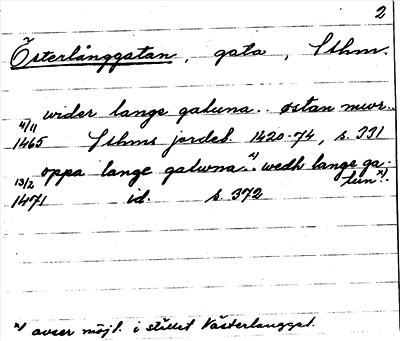 2
Österlånggatan, gata, Sthm.
wider lange gatuna.. østan mur..
4/11
1465 Sthms jordeb. 1420-74, s. 331
oppa lange gatuna x).. wedh lange ga-
tun x).
13/2
1471 id. s. 372
x) avser möjl. i stället Västerlångget.